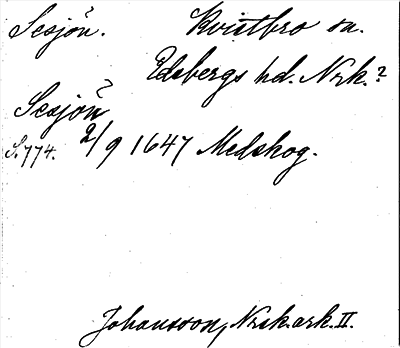 Sesjön. Kvistbro sn.
Edsbergs hd. Nrk.?
Sesjön?
S. 774. 2/9 1647 Medskog.
Johansson, Nrsk. ark. II.